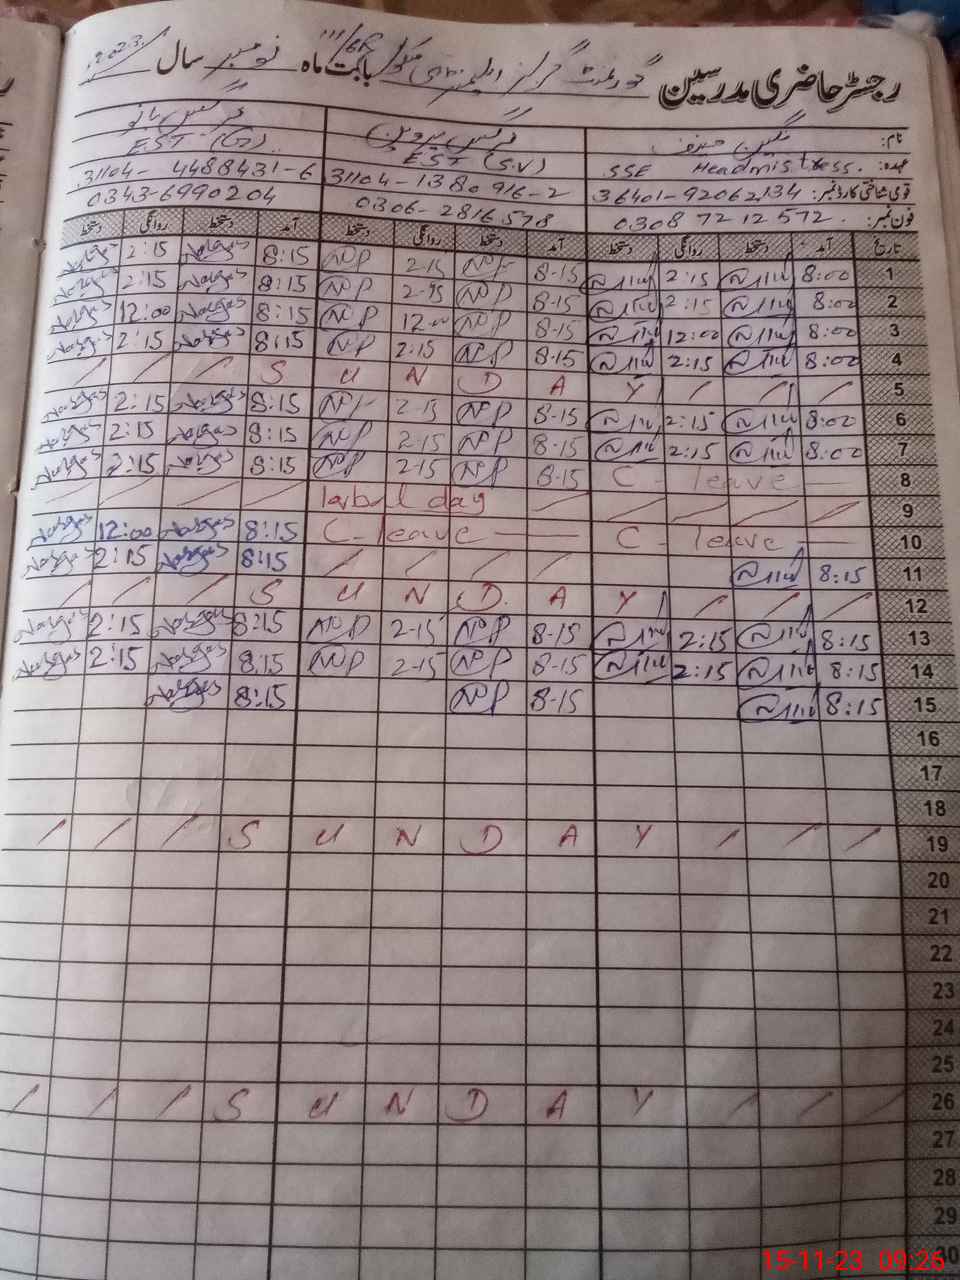 رجسٹر حاضری مدرسین گورنمنٹ گرلز ایلیمنٹری بابت ماہ نومبر سال 2023
نام: نرگس پروین نرگس بانو
عہدہ: SSE Headmistress. EST (S.V) E.S.T (G)
قومی شناختی کارڈ نمبر: 36401-92062134 31104-1380916-2 31104-4488431-6
فون نمبر: 0308 7212572. 0306-2816578 0343-6990204
تاریخ آمد دستخط روانگی دستخط آمد دستخط روانگی دستخط آمد دستخط روانگی دستخط
1 8:00 2:15 8-15 NP 2-15 NP 8:15 Narges 2:15 Narges
2 8:00 2:15 8-15 NP 2-15 NP 8:15 Narges 2:15 Narges
3 8:00 12:00 8-15 NP 12-00 NP 8:15 Narges 12:00 Narges
4 8:00 2:15 8-15 NP 2:15 NP 8:15 Narges 2:15 Narges
/ / / S U N D A Y / / / 5
6 8:00 2:15 8-15 NP 2-15 NP 8:15 Narges 2:15 Narges
7 8:00 2:15 8-15 NP 2-15 NP 8:15 Narges 2:15 Narges
8 C- leave — 8-15 NP 2-15 NP 8:15 Narges 2:15 Narges
9 Iabal day
10 C- leave — C- leave — 8:15 Narges 12:00 Narges
11 8:15 / / / / 8:15 Narges 2:15 Narges
/ / / S U N D. A Y / / / 12
13 8:15 2:15 8-15 NP 2-15 NP 8:15 Narges 2:15 Narges
14 8:15 2:15 8-15 NP 2-15 NP 8:15 Narges 2:15 Narges
15 8:15 8-15 NP 8:15 Narges
16
17
18
/ / / S U N D A Y / / / 19
20
21
22
23
24
25
/ / / S U N D A Y / / / 26
27
28
29
30
15-11-23 09:26